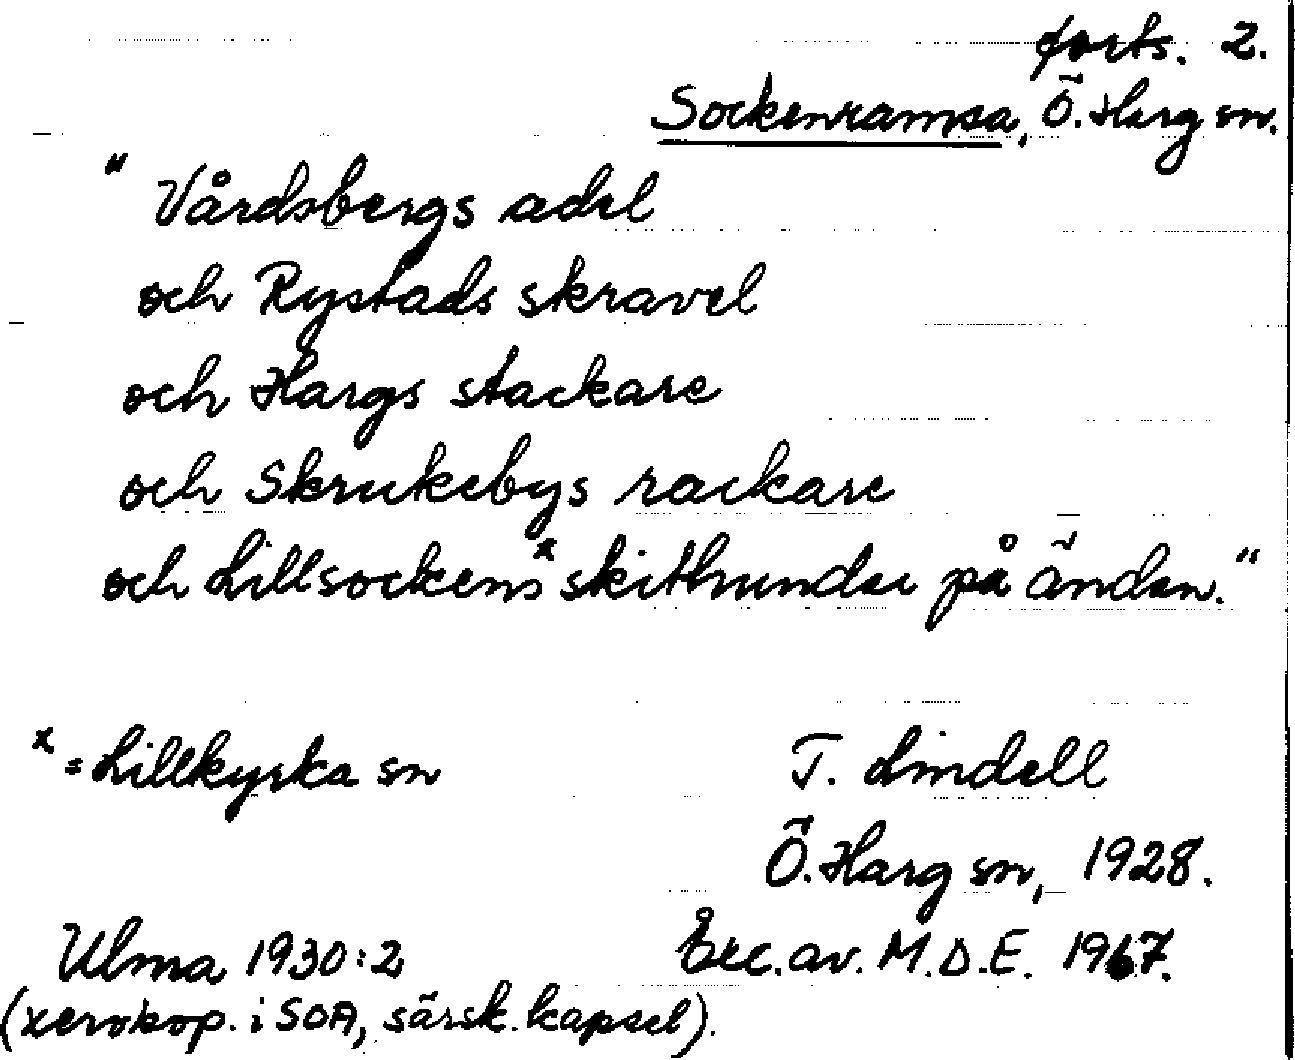 forts. 2.
Sockenramsa, Ö. Harg sn.
" Vårdsbergs adel
och Rystads skravel
och Hargs stackare
och Skrukebys rackare
och Lillsockens x skithundar på ändan."
x = Lillkyrka sn
T. Lindell
Ö. Harg sn, 1928.
Ulma 1930:2
Exc. av. M.D.E. 1967.
(xerokop. i SOA, särsk. kapsel).